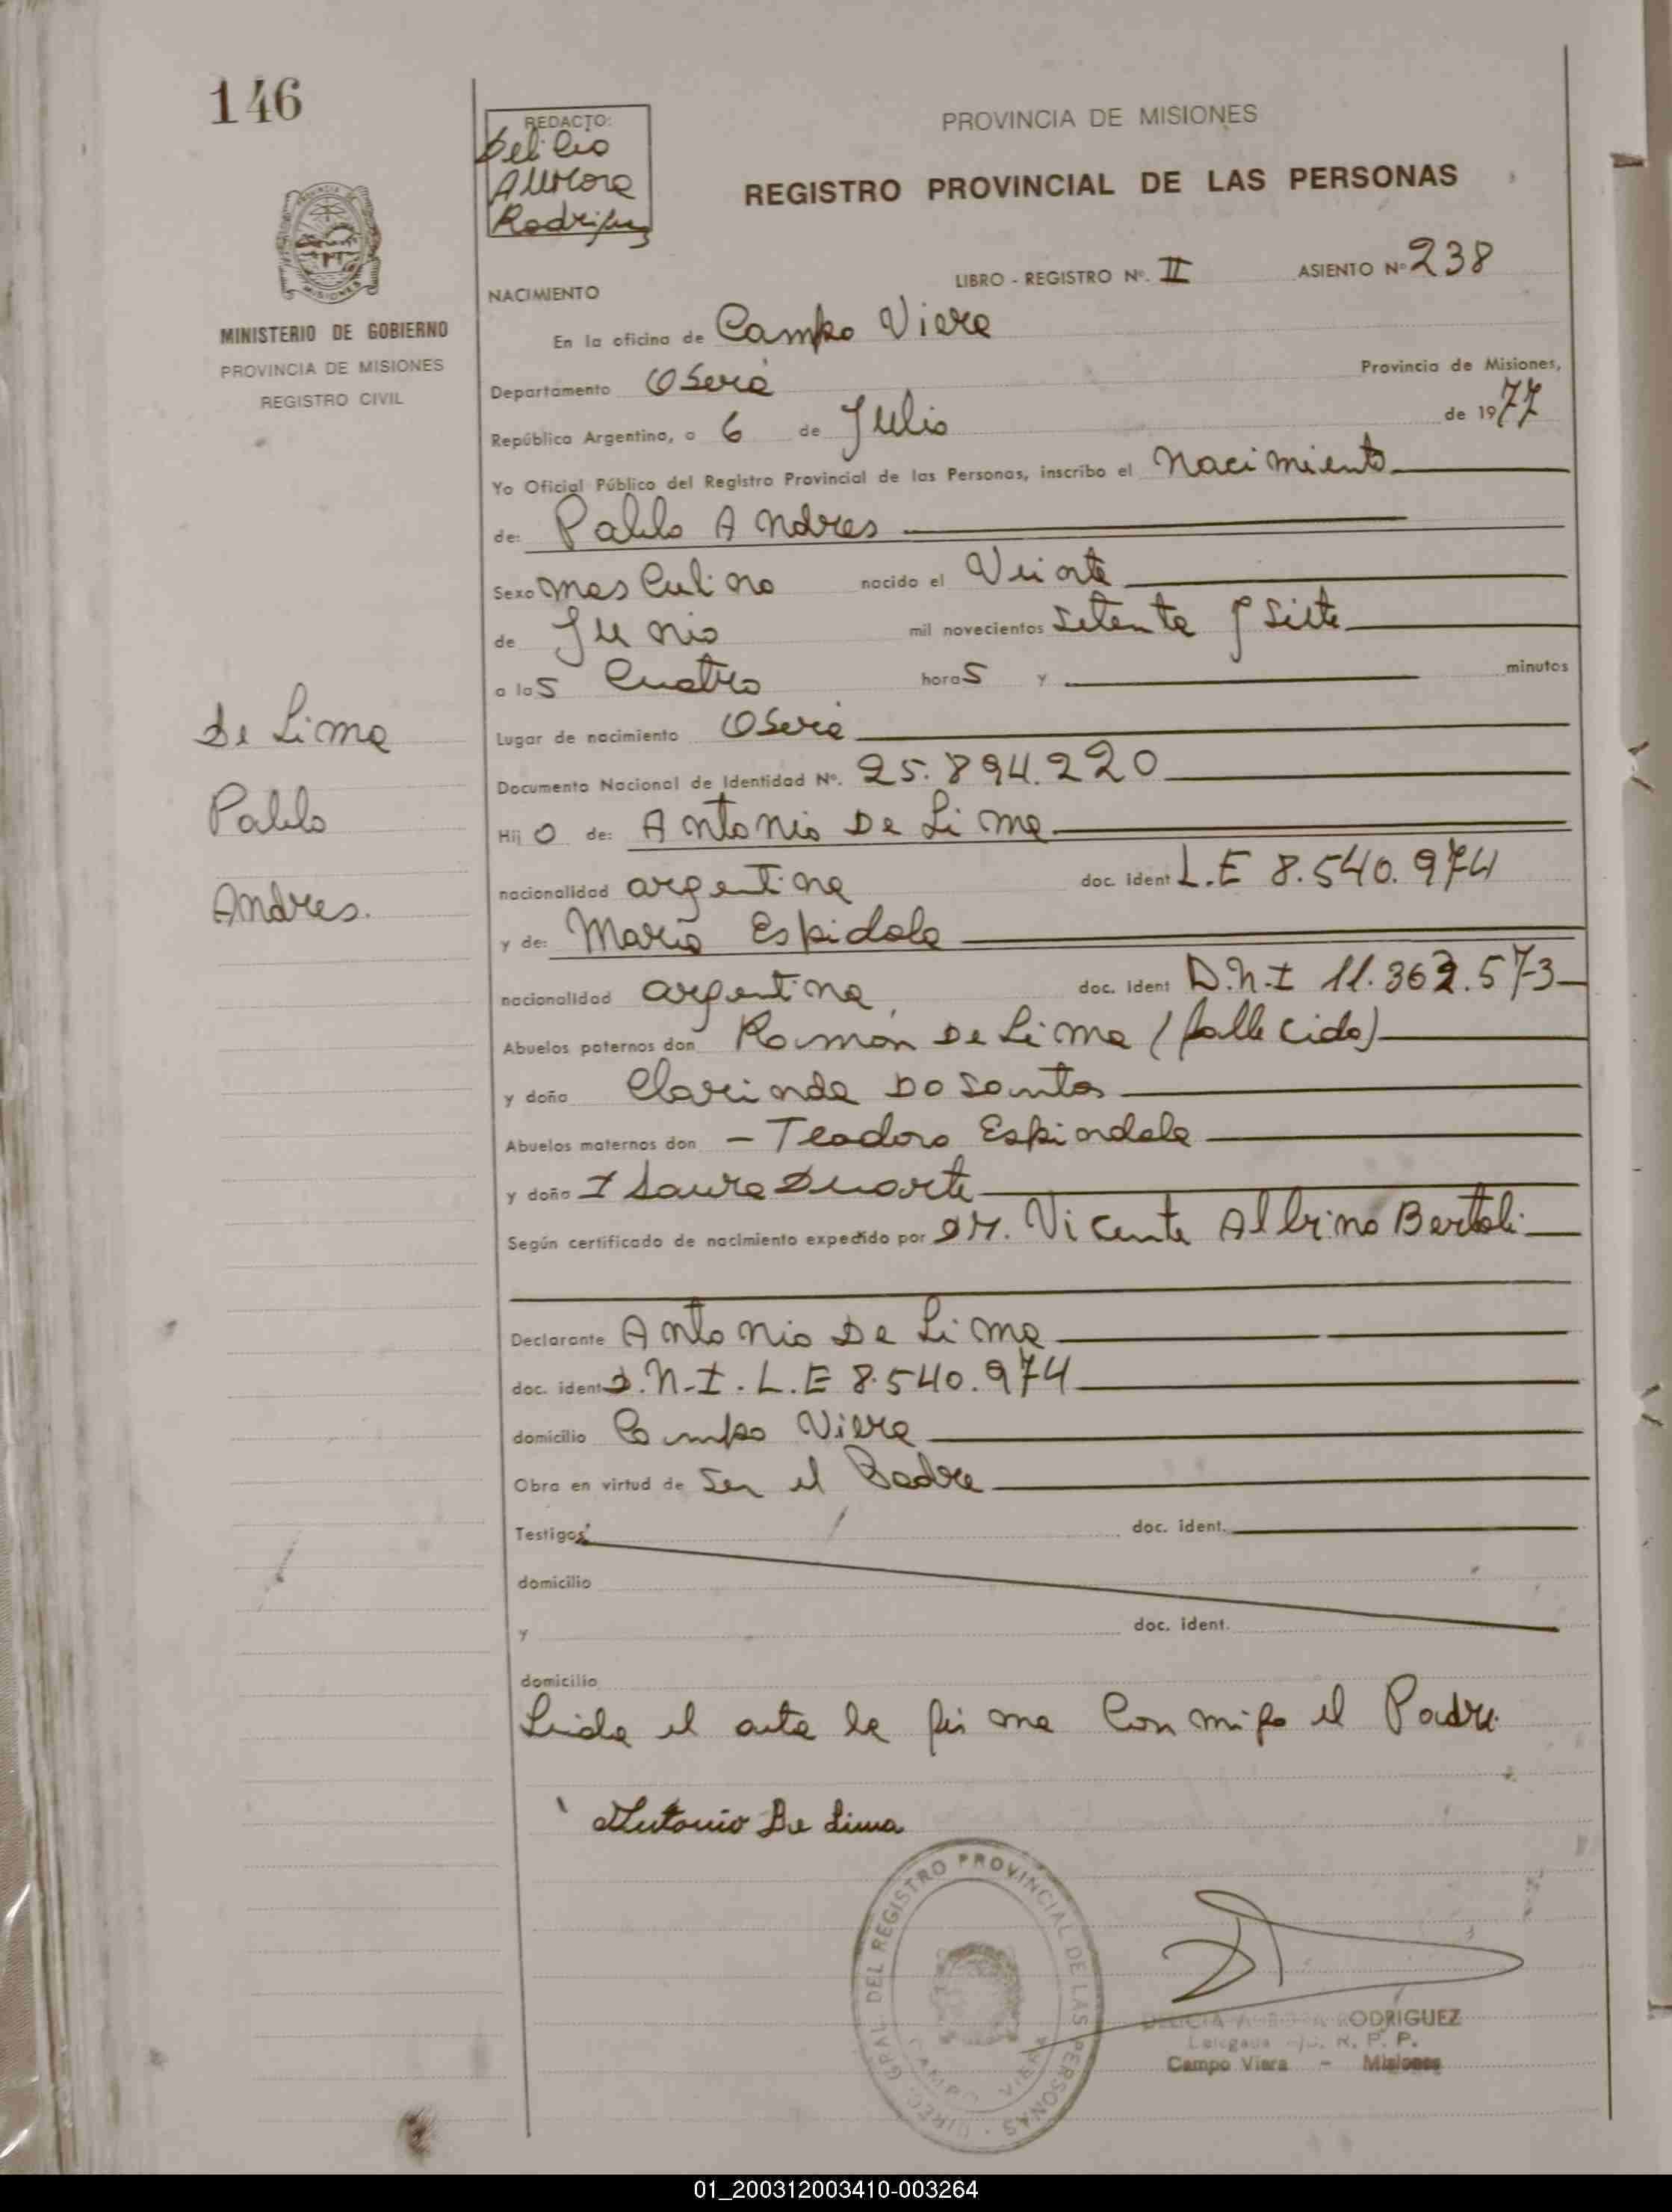 146
REDACTO:
Delicia
Aurora
Rodriguez
PROVINCIA DE MISIONES
REGISTRO PROVINCIAL DE LAS PERSONAS
MISIONES
MINISTERIO DE GOBIERNO
PROVINCIA DE MISIONES
REGISTRO CIVIL
LIBRO - REGISTRO Nº. II ASIENTO Nº 238
NACIMIENTO
En la oficina de Campo Viera
Departamento Oberá Provincia de Misiones,
República Argentina, a 6 de Julio de 1977
Yo Oficial Público del Registro Provincial de las Personas, inscribo el Nacimiento
de: Pablo Andres
Sexo masculino nacido el Veinte
de Junio mil novecientos setenta y siete
a las cuatro horas y minutos
Lugar de nacimiento Oberá
Documento Nacional de Identidad Nº. 25.894.220
Hijo de: Antonio De Lima
nacionalidad argentina doc. ident L.E 8.540.974
y de: Maria Espidola
nacionalidad argentina doc. ident D.N.I 11.362.573
Abuelos paternos don Ramón De Lima (fallecido)
y doña Clarinda Do Santos
Abuelos maternos don - Teodoro Espindola
y doña Isaura Duarte
Según certificado de nacimiento expedido por Dr. Vicente Albino Bertoli
Declarante Antonio De Lima
doc. ident D.N.I. L.E 8.540.974
domicilio Campo Viera
Obra en virtud de ser el Padre
Testigos doc. ident.
domicilio
y doc. ident.
domicilio
Leida el acta la firma conmigo el Padre.
Antonio De Lima
De Lima
Pablo
Andres.
DIREC. GRAL. DEL REGISTRO PROVINCIAL DE LAS PERSONAS
CAMPO VIERA
DELICIA AURORA RODRIGUEZ
Delegada R. P. P.
Campo Viera - Misiones
01_200312003410-003264